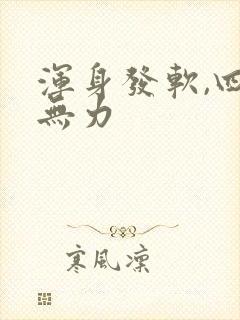 渾身發軟,四
無力
寒風凜